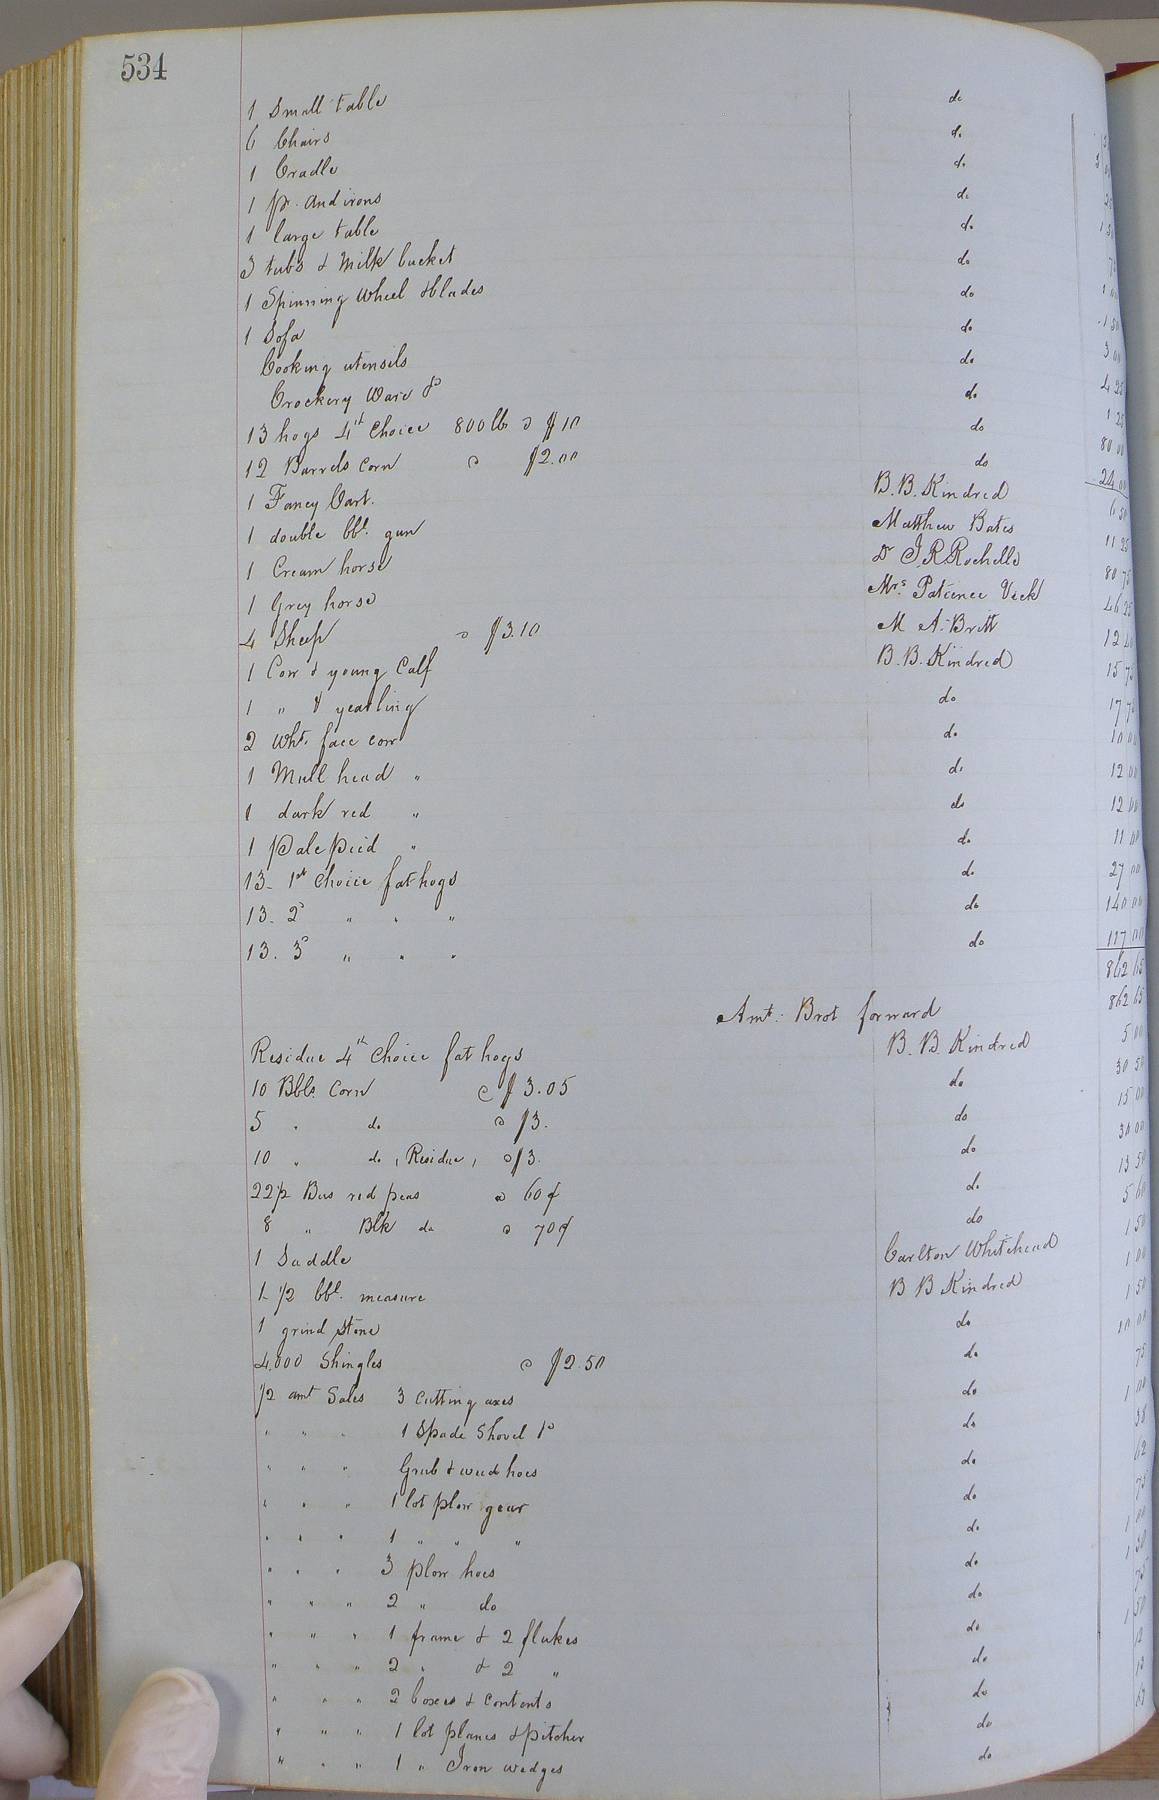 534
1 Small table do
6 Chairs do
1 Cradle do
1 pr. andirons do
1 large table do 1 50
3 tubs & Milk bucket do 75
1 Spinning Wheel & blades do 1 00
1 Sofa do 1 50
Cooking utensils do 3 00
Crockery Ware & do 4 25
13 hogs 4th Choice 800 lbs @ $10 do 80 00
12 Barrels Corn @ $2.00 do 24 00
1 Fancy Cart. B. B. Kindred 6 50
1 double bbl. gun Matthew Bates 11 25
1 Cream horse Dr J. R. Rochelle 80 75
1 Grey horse Mrs. Patience Vick 46 25
4 Sheep @ $3.10 M A. Britt 12 40
1 Cow & young Calf B. B. Kindred 15 75
1 " & yearling do 17 75
2 Wht. face cow do 10 00
1 Mull head " do 12 00
1 dark red " do 12 00
1 Pale pied " do 11 00
13- 1st Choice fat hogs do 27 00
13. 2d " " " do 140 00
13. 3d " " " do 117 00
862 65
Amt: Brot forward 862 65
Residue 4th Choice fat hogs B. B. Kindred 5 00
10 Bbls. Corn @ $3.05 do 30 50
5 " do @ $3. do 15 00
10 " do, Residue, @ $3. do 30 00
22 1/2 Bus red peas @ 60¢ do 13 50
8 " Blk do @ 70¢ do 5 60
1 Saddle Carlton Whitehead 1 50
1- 1/2 bbl. measure B B Kindred 1 00
1 grind stone do 1 50
4,000 Shingles @ $2.50 do 10 00
1/2 amt Sales 3 cutting axes do 75
" " " 1 Spade Shovel do 1 00
" " " Grub & weed hoes do 38
" " " 1 lot plow gear do 62
" " " 1 " " " do 75
" " " 3 plow hoes do 1 00
" " " 2 " do do 1 50
" " " 1 frame & 2 flukes do 75
" " " 2 " & 2 " do 1 50
" " " 2 boxes & contents do 12
" " " 1 lot planes & pitcher do 12
" " " 1 " Iron wedges do